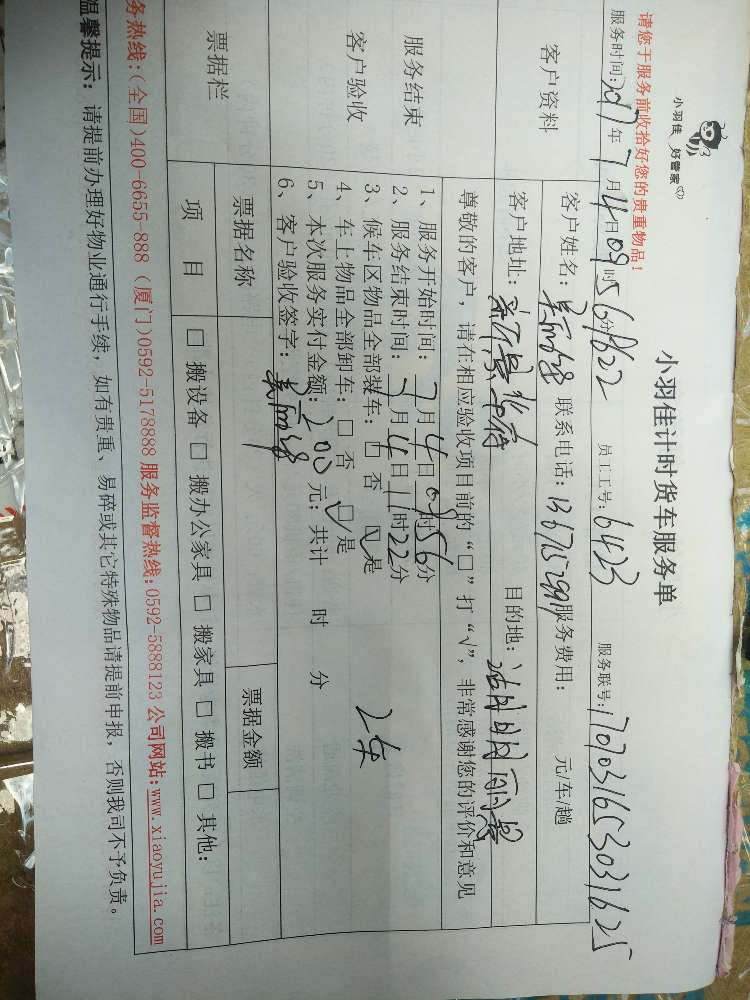 小羽佳 好管家
小羽佳计时货车服务单
请您于服务前收拾好您的贵重物品!
服务时间:2017年7月4日09时56分 员工工号:6423 服务联号:1707031653031625
客户资料
客户姓名: 联系电话: 服务费用: 元/车/趟
客户地址: 目的地:
服务结束
客户验收
尊敬的客户,请在相应验收项目前的“□”打“√”,非常感谢您的评价和意见
1、服务开始时间:7月4日09时56分
2、服务结束时间:7月4日11时22分
3、候车区物品全部装车:□否 □是
4、车上物品全部卸车:□否 □是
5、本次服务实付金额:200元;共计 时 分
6、客户验收签字:
2车
票据栏
票据名称 票据金额
项目 □搬设备 □搬办公家具 □搬家具 □搬书 □其他:
务热线:(全国)400-6655-888 (厦门)0592-5178888 服务监督热线:0592-5888123 公司网站:www.xiaoyujia.com
温馨提示:请提前办理好物业通行手续,如有贵重、易碎或其它特殊物品请提前申报,否则我司不予负责。